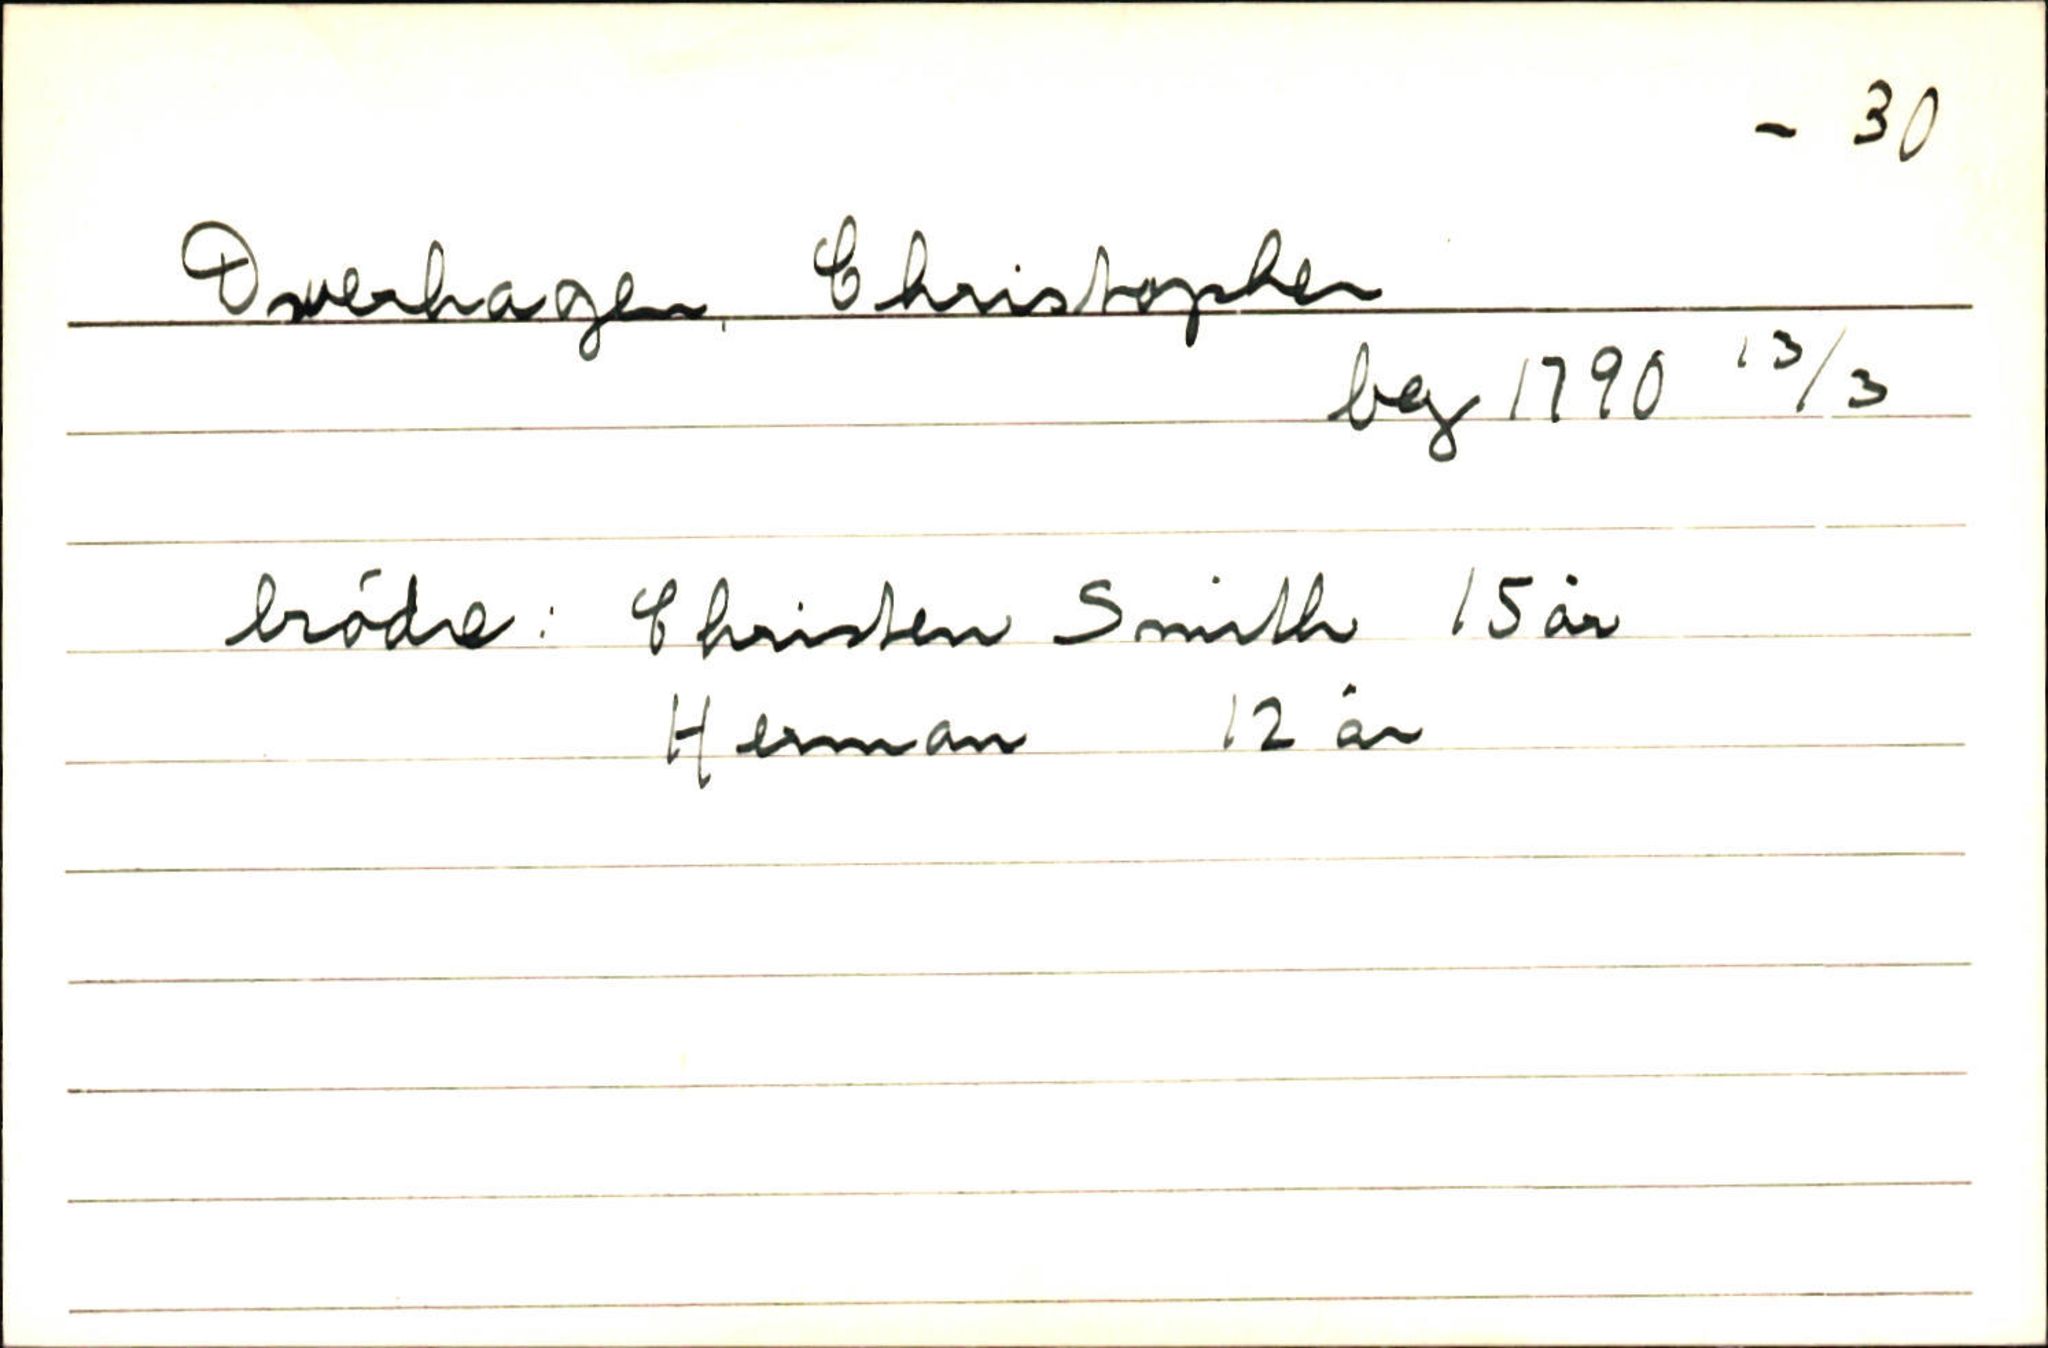 - 30
Dverhagen, Christopher
beg 1790 13/3
bródre: Christen Smith 15 år
Herman 12 år